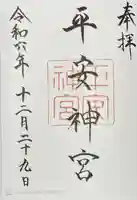 奉拝
平安神宮
令和六年 十二月二十九日